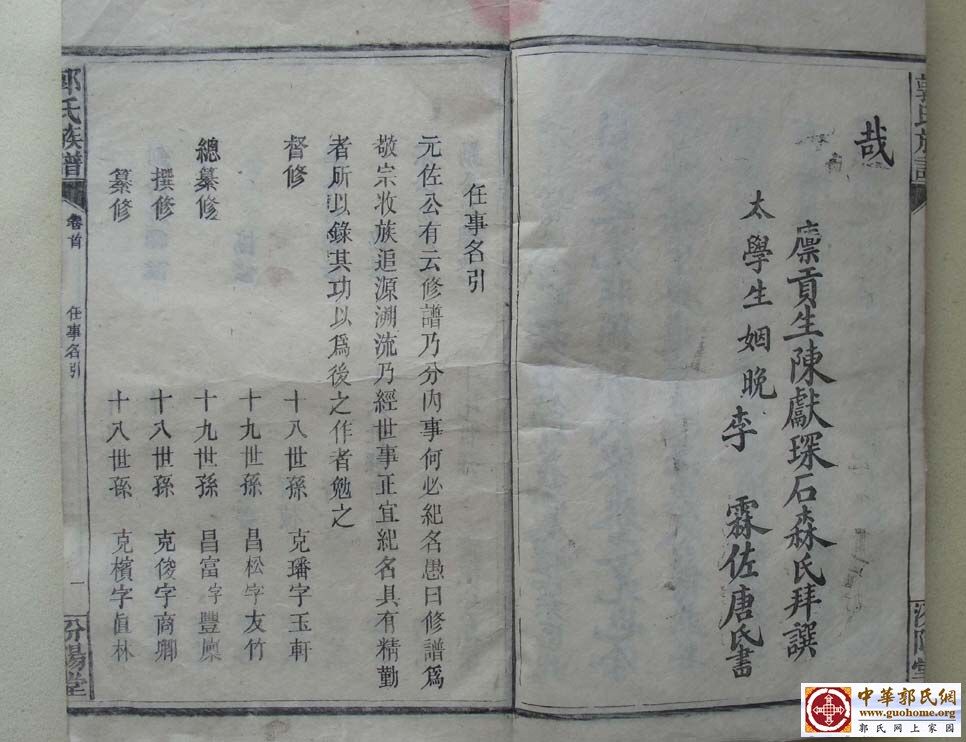 郭氏族譜
汾陽堂
哉
廪貢生陳獻琛石森氏拜譔
太學生姻晚李霖佐唐氏書
任事名引
元佐公有云修譜乃分內事何必紀名愚曰修譜爲
敬宗收族追源溯流乃經世事正宜紀名具有精勤
者所以錄其功以爲後之作者勉之
督修 十八世孫 克璠字玉軒
十九世孫 昌松字友竹
總纂修 十九世孫 昌富字豐廩
撰修 十八世孫 克俊字商卿
纂修 十八世孫 克檳字眞林
郭氏族譜 卷首 任事名引 一 汾陽堂
中華郭氏網
www.guohome.org
郭氏网上家园